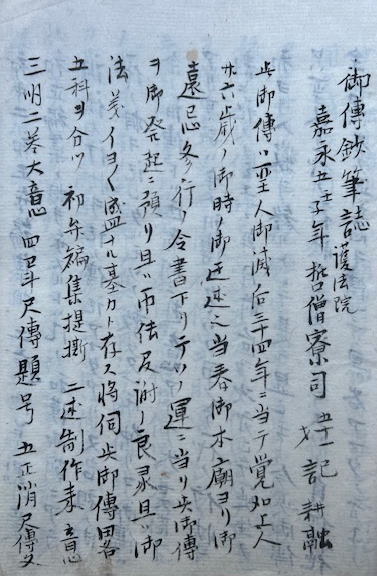 御傳鈔筆誌 護法院
嘉永五壬子年 哲僧寮司 五十一才 記 耕融
此御傳ハ聖人御滅后三十四年ニ当テ覚如上人
廿六歳ノ御時ノ御述ニ当春御本廟ヨリ御
遠忌冬行ノ令書下リテソノ運ニ当リ此御傳
ヲ御発起ニ預リ且ハ師法及謝ノ良縁且ハ御
法義イヨ〱盛ナル基カト存ス将伺此御傳畧
五科ヲ分ツ 初弁編集提撕 二述制作来意
三明二巻大意 四正斗尺傳題号 五正消尺傳文